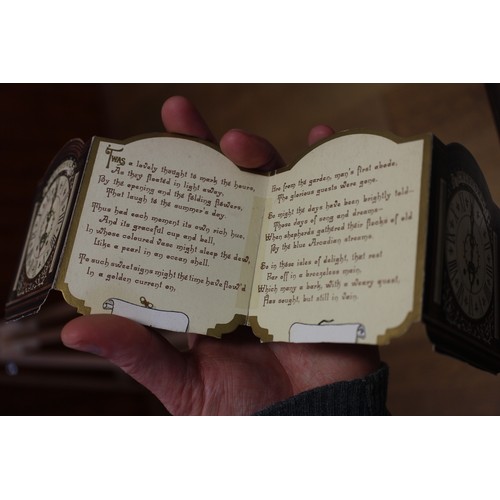 'Twas a lovely thought to mark the hours,
As they floated in light away,
By the opening and the folding flowers,
That laugh to the summer's day.
Thus had each moment its own rich hue,
And its graceful cup and bell,
In whose coloured vase might sleep the dew,
Like a pearl in an ocean shell.
To such sweet signs might the time have flow'd
In a golden current on,
Ere from the garden, man's first abode,
The glorious guests were gone.
So might the days have been brightly told—
Those days of song and dreams—
When shepherds gathered their flocks of old
By the blue Arcadian streams.
So in those isles of delight, that rest
Far off in a breezeless main,
Which many a bark, with a weary quest,
Has sought, but still in vain.